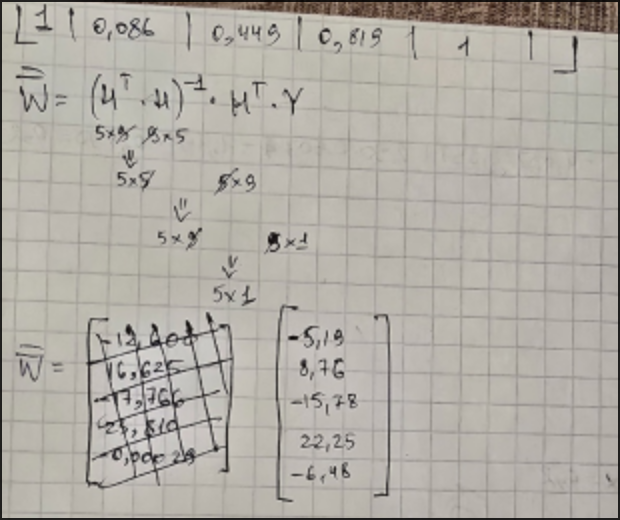 [1 | 0,086 | 0,449 | 0,819 | 1 | ]
W = (H^T · H)^-1 · H^T · Y
5x9 9x5
⇓
5x5 5x9
⇓
5x9 9x1
⇓
5x1
W =
16,625
-17,766
25,810
-0,00029
-5,19
8,76
-15,78
22,25
-6,48